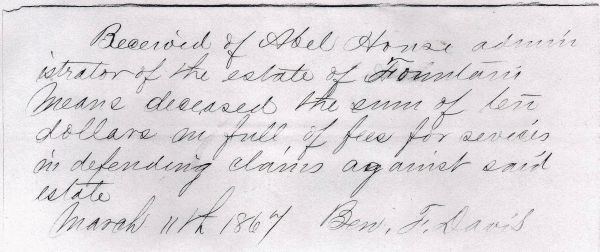 Received of Abel House admin
istrator of the estate of Fountain
Means deceased the sum of ten
dollars in full of fees for sevices
in defending claims against said
estate
March 11th 1867 Ben. F. Davis